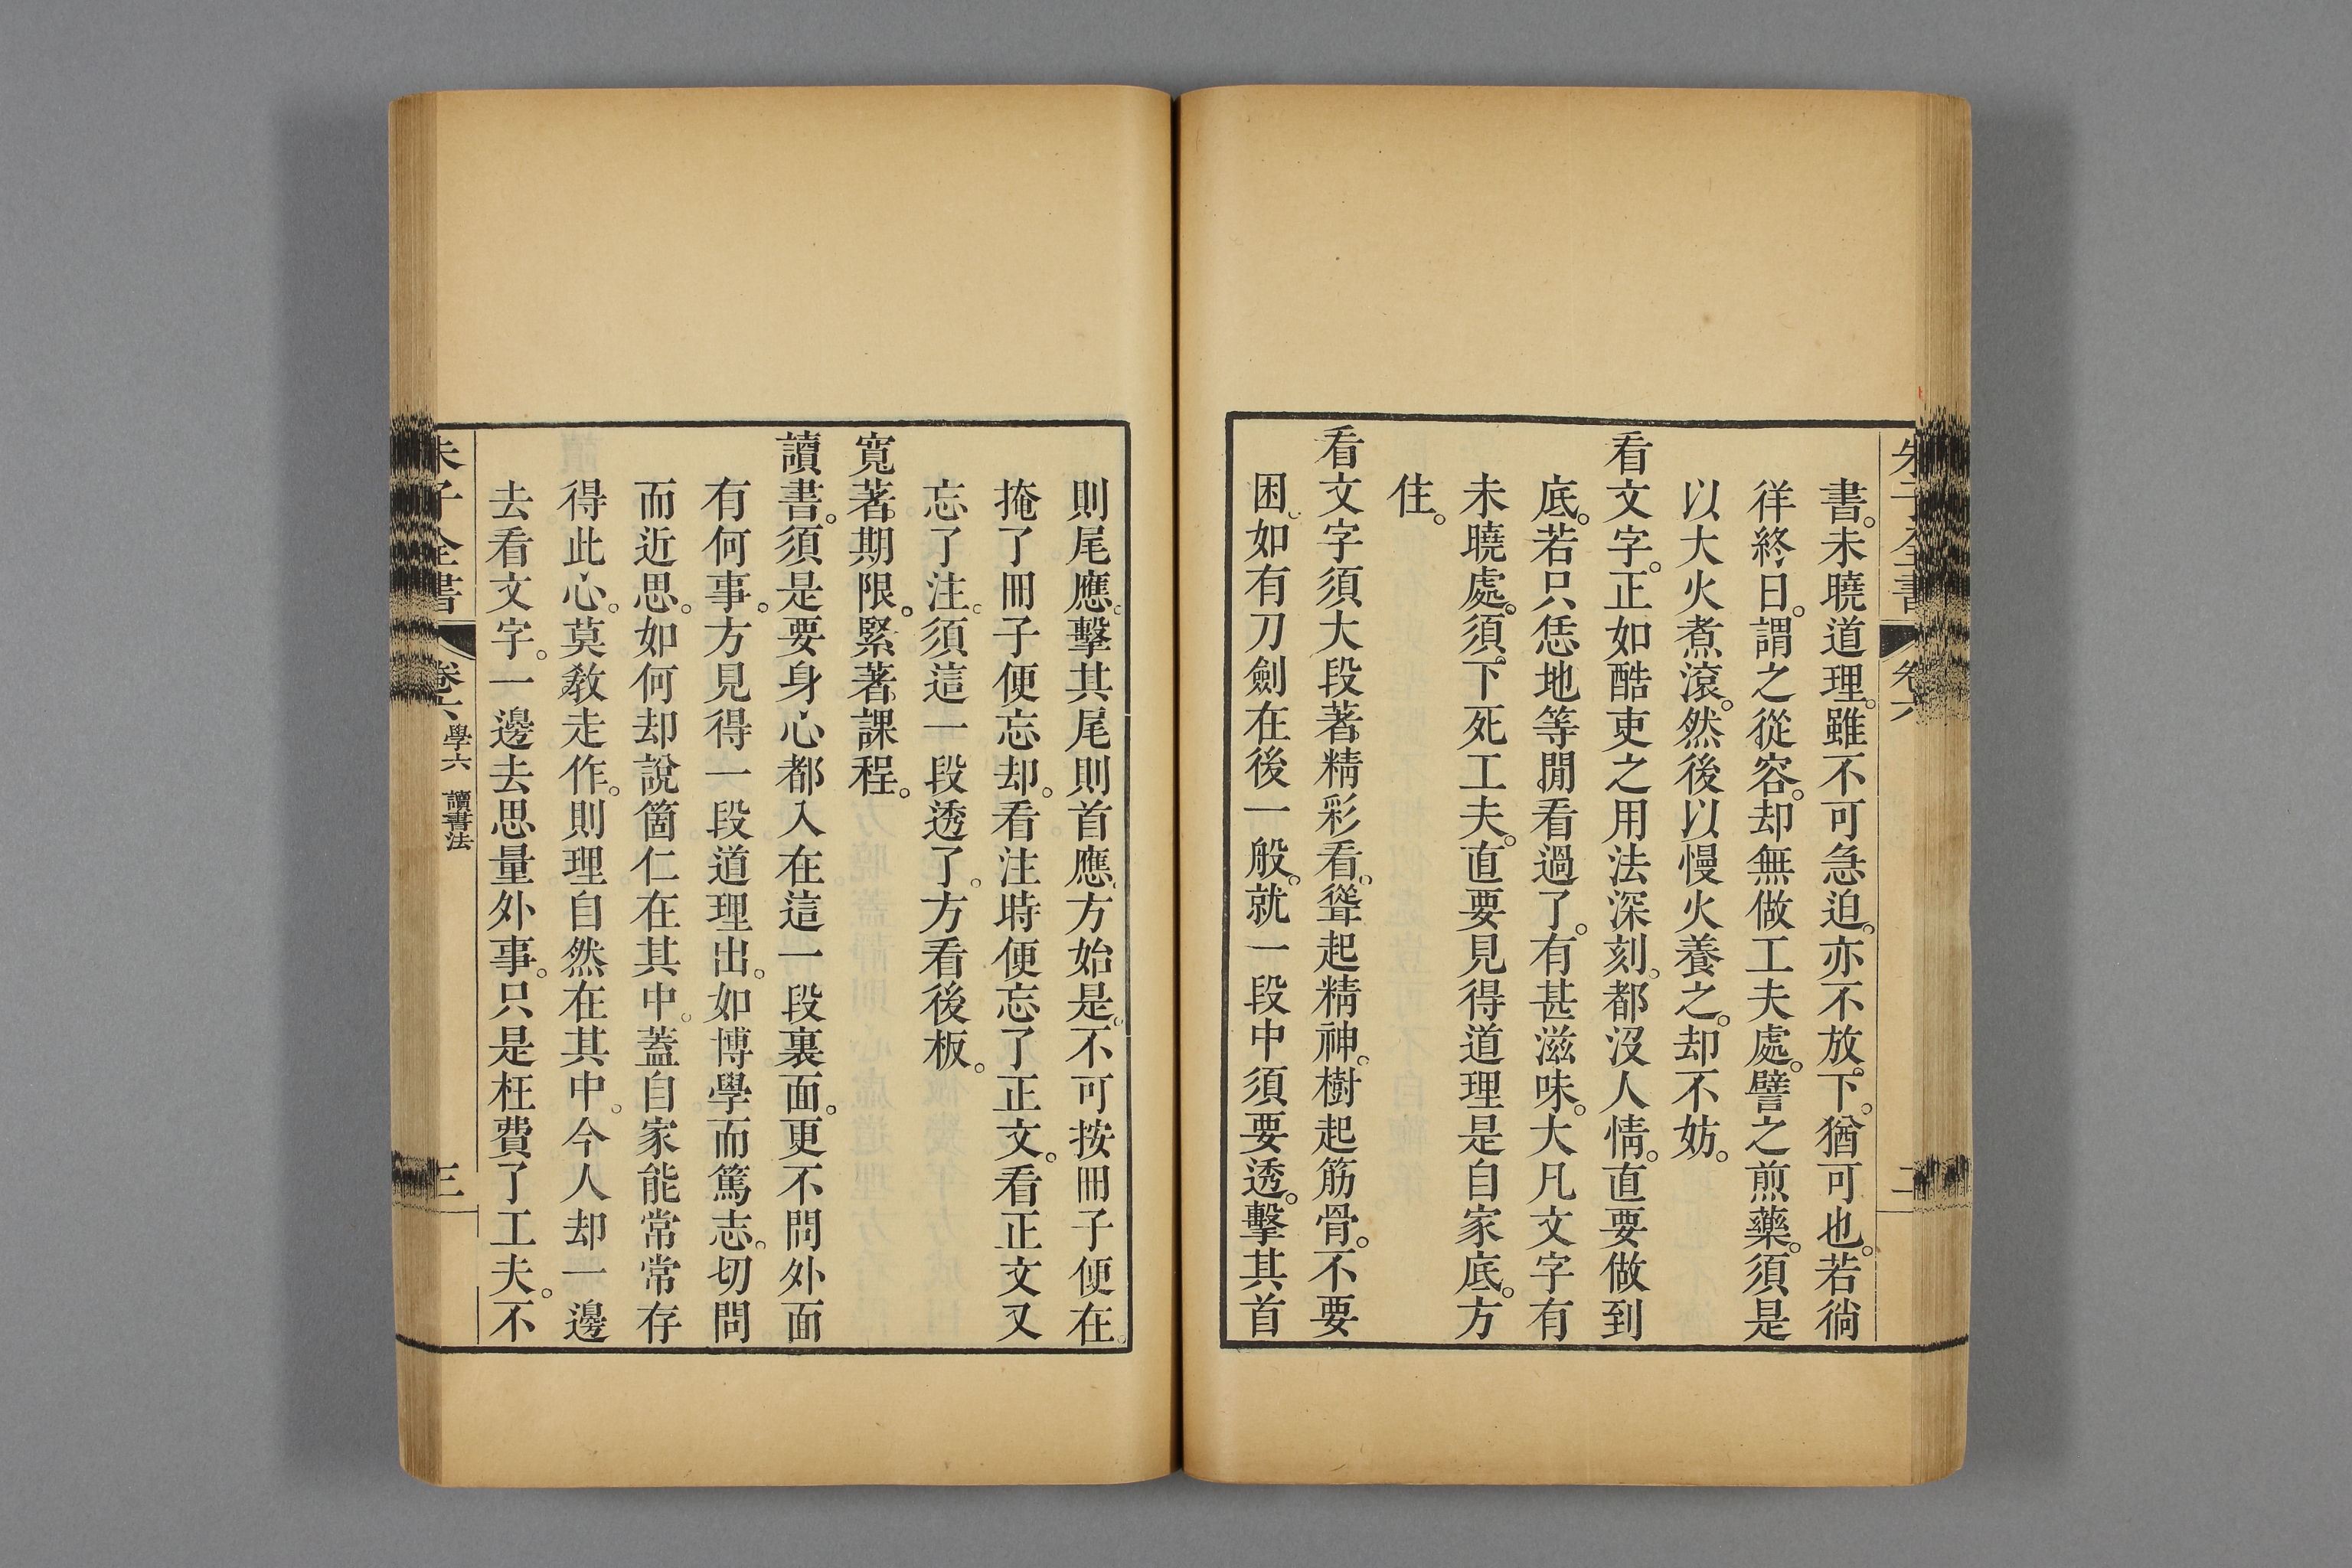 朱子全書 卷六 二
書。未曉道理。雖不可急迫。亦不放下。猶可也。若徜
徉終日。謂之從容。却無做工夫處。譬之煎藥。須是
以大火煮滾。然後以慢火養之。却不妨。
看文字。正如酷吏之用法深刻。都沒人情。直要做到
底。若只恁地等閒看過了。有甚滋味。大凡文字有
未曉處。須下死工夫。直要見得道理是自家底。方
住。
看文字須大段著精彩看。聳起精神。樹起筋骨。不要
困。如有刀劍在後一般。就一段中須要透。擊其首
則尾應。擊其尾則首應。方始是。不可按冊子便在。
掩了冊子便忘却。看注時便忘了正文。看正文又
忘了注。須這一段透了。方看後板。
寬著期限。緊著課程。
讀書。須是要身心都入在這一段裏面。更不問外面
有何事。方見得一段道理出。如博學而篤志。切問
而近思。如何却說箇仁在其中。蓋自家能常常存
得此心。莫敎走作。則理自然在其中。今人却一邊
去看文字。一邊去思量外事。只是枉費了工夫。不
朱子全書 卷六 學六 讀書法 三